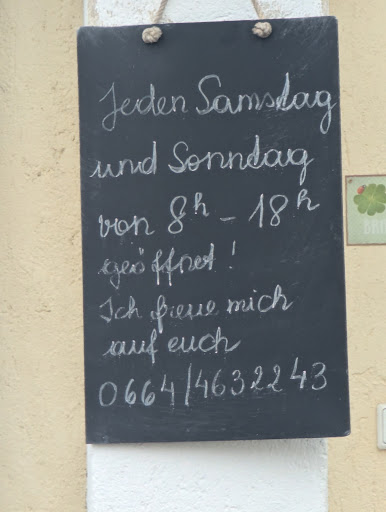 Jeden Samstag
und Sonntag
von 8h - 18h
geöffnet!
Ich freue mich
auf euch
0664/4632243